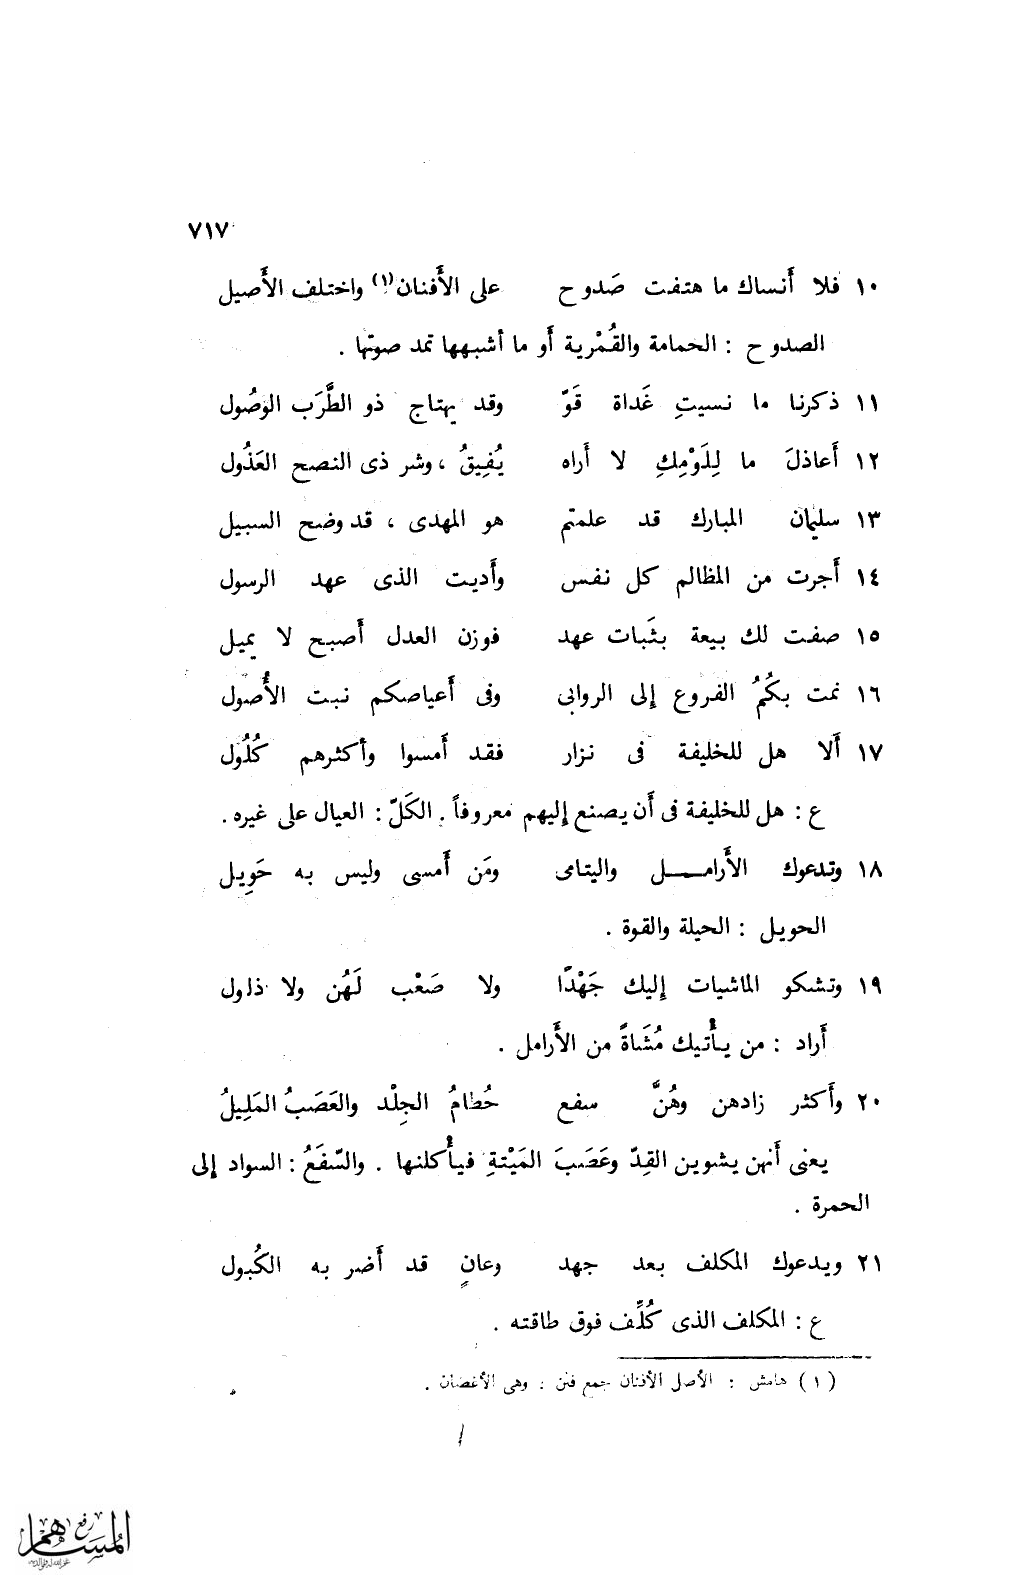 ٧١٧
١٠ فلا أَنساك ما هتفت صَدوح على الأَفنان(١) واختلف الأَصيل
الصدوح : الحمامة والقُمْرية أَو ما أشبهها تمد صوتها .
١١ ذكرنا ما نسيتِ غَداة قَوّ وقد يهتاج ذو الطَّرَب الوصُول
١٢ أَعاذلَ ما لِلَوْمِكِ لا أَراه يُفِيقُ ، وشر ذى النصح العَذُول
١٣ سليمان المبارك قد علمتم هو المهدى ، قد وضح السبيل
١٤ أَجرت من المظالم كل نفس وأَديت الذى عهد الرسول
١٥ صفت لك بيعة بثَبات عهد فوزن العدل أَصبح لا يميل
١٦ نمت بكُمُ الفروع إلى الروابى وفى أَعياصكم نبت الأُصول
١٧ أَلا هل للخليفة فى نزار فقد أَمسوا وأكثرهم كُلُول
ع : هل للخليفة فى أَن يصنع إليهم معروفاً . الكَلّ : العيال على غيره .
١٨ وتدعوك الأَرامـــل واليتامى ومَن أَمسى وليس به حَوِيل
الحويل : الحيلة والقوة .
١٩ وتشكو الماشيات إليك جَهْدًا ولا صَعْب لَهُن ولا ذلول
أَراد : من يأْتيك مُشَاةً من الأَرامل .
٢٠ وأَكثر زادهن وهُنَّ سفع حُطامُ الجِلْد والعَصَبُ المَلِيلُ
يعنى أَنهن يشوين القِدّ وعَصَبَ المَيْتةِ فيأْكلنها . والسّفَعُ : السواد إلى
الحمرة .
٢١ ويدعوك المكلف بعد جهد وعانٍ قد أَضر به الكُبول
ع : المكلف الذى كُلِّف فوق طاقته .
(١) هامش : الأصل الأفنان جمع فنن : وهى الأغصان .
رفع
المساهم